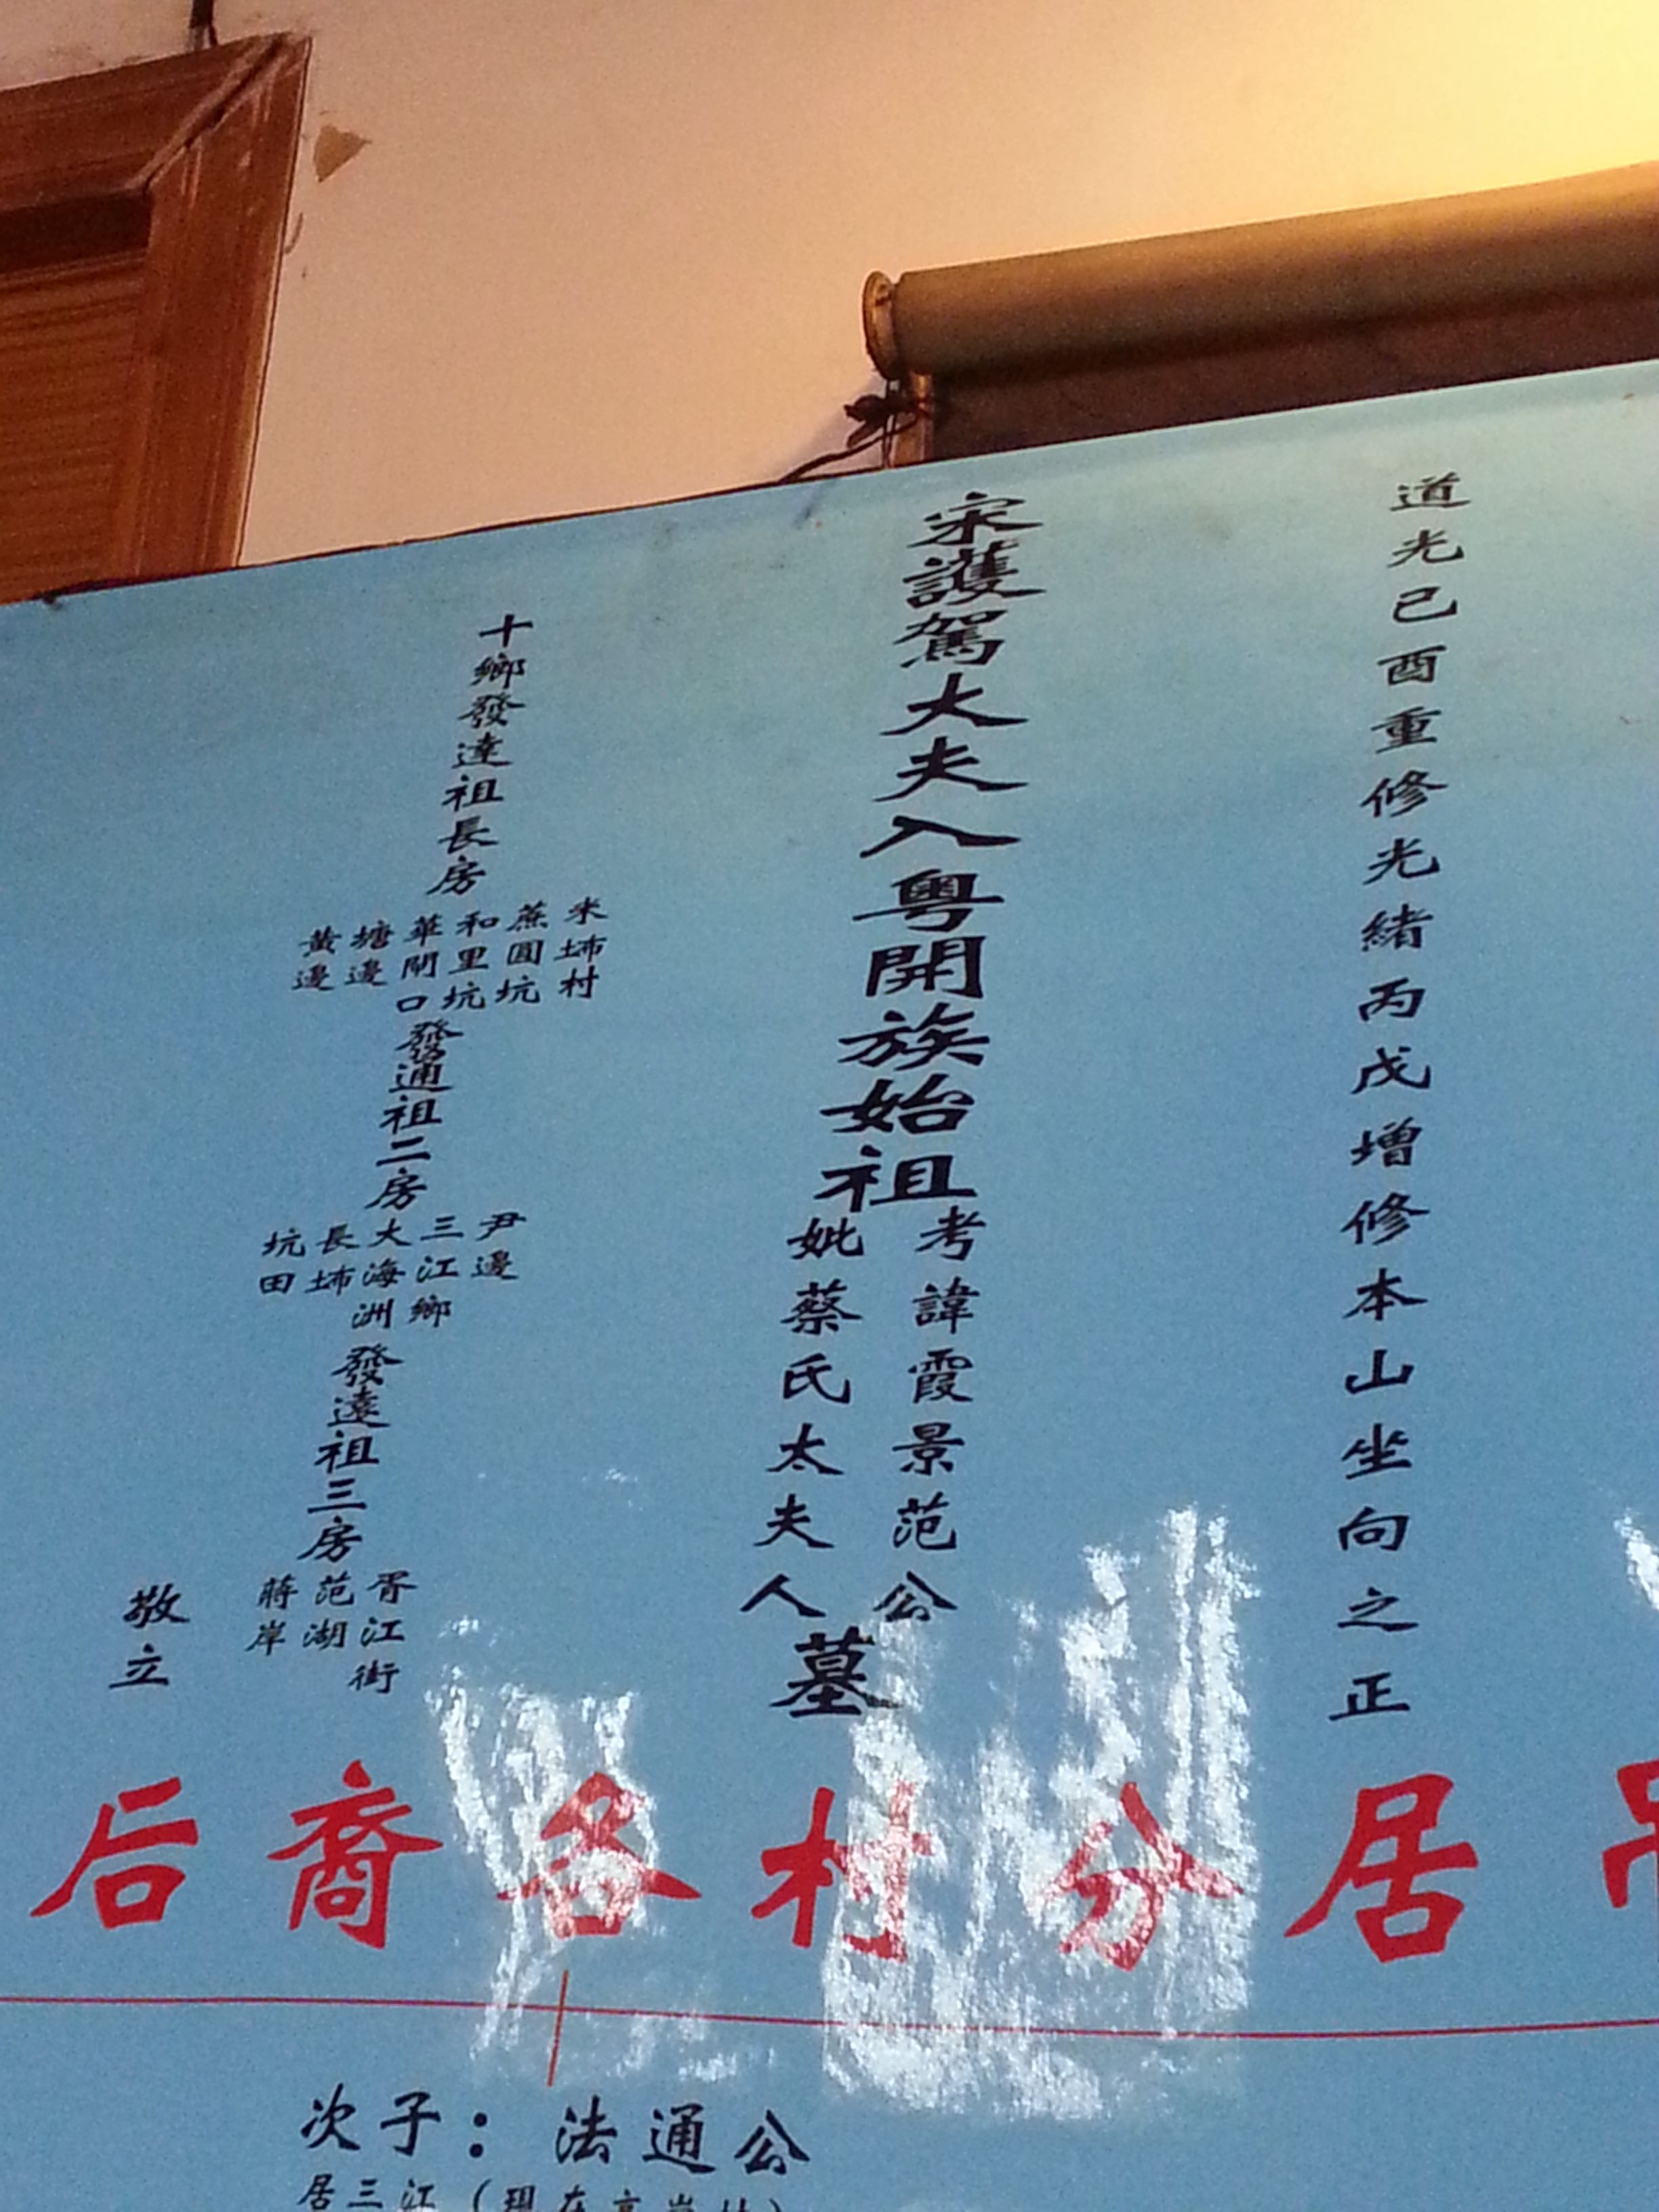 道光己酉重修光緒丙戌增修本山坐向之正
宋護駕大夫入粵開族始祖
考諱霞景范公
妣蔡氏太夫人
墓
十鄉發達祖長房
米㘵村
蔗圓坑
和里坑
華閘口
塘邊
黃邊
發通祖二房
尹邊
三江鄉
大海洲
長㘵
坑田
發遠祖三房
胥江街
范湖
蔣岸
敬立
后裔各村分居
次子：法通公
居三江（現在